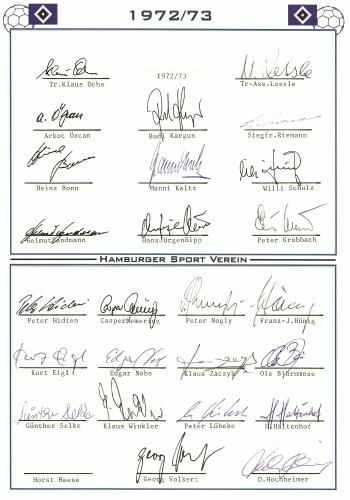 1972/73
1972/73
Tr.Klaus Ochs
Tr-Ass.Lessle
Arkoc Özcan
Rudi Kargus
Siegfr.Riemann
Heinz Bonn
Manni Kaltz
Willi Schulz
HelmutSandmann
HansJürgenRipp
Peter Krobbach
HAMBURGER SPORT VEREIN
Peter Hidien
CasparMemering
Peter Nogly
Franz-J.Hönig
Kurt Eigl
Edgar Nobs
Klaus Zaczyk
Ole Björnmose
Günther Selke
Klaus Winkler
Peter Lübeke
H.Haltenhof
Horst Heese
Georg Volkert
D.Hochheimer